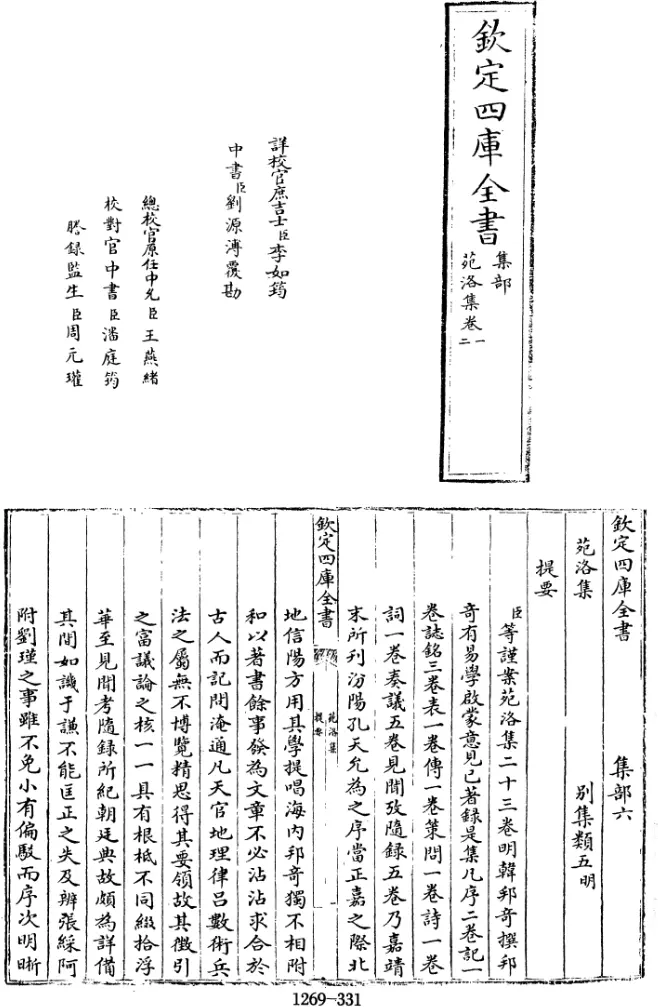 欽定四庫全書
集部
苑洛集卷一
二
詳校官庶吉士臣李如筠
中書臣劉源溥覆勘
總校官原任中允臣王燕緒
校對官中書臣潘庭筠
謄錄監生臣周元瓘
欽定四庫全書　集部六
苑洛集　別集類五明
提要
臣等謹案苑洛集二十三卷明韓邦奇撰邦
奇有易學啟蒙意見已著錄是集凡序二卷記一
卷誌銘三卷表一卷傳一卷策問一卷詩一卷
詞一卷奏議五卷見聞攷隨錄五卷乃嘉靖
末所刊汾陽孔天允為之序當正嘉之際北
欽定四庫全書
苑洛集
提要
地信陽方用其學提唱海內邦奇獨不相附
和以著書餘事發為文章不必沾沾求合於
古人而記問淹通凡天官地理律呂數術兵
法之屬無不博覽精思得其要領故其徵引
之富議論之核一一具有根柢不同綴拾浮
華至見聞考隨錄所紀朝廷典故頗為詳備
其間如譏于謙不能匡正之失及辨張綵阿
附劉瑾之事雖不免小有偏駁而序次明晰
1269-331